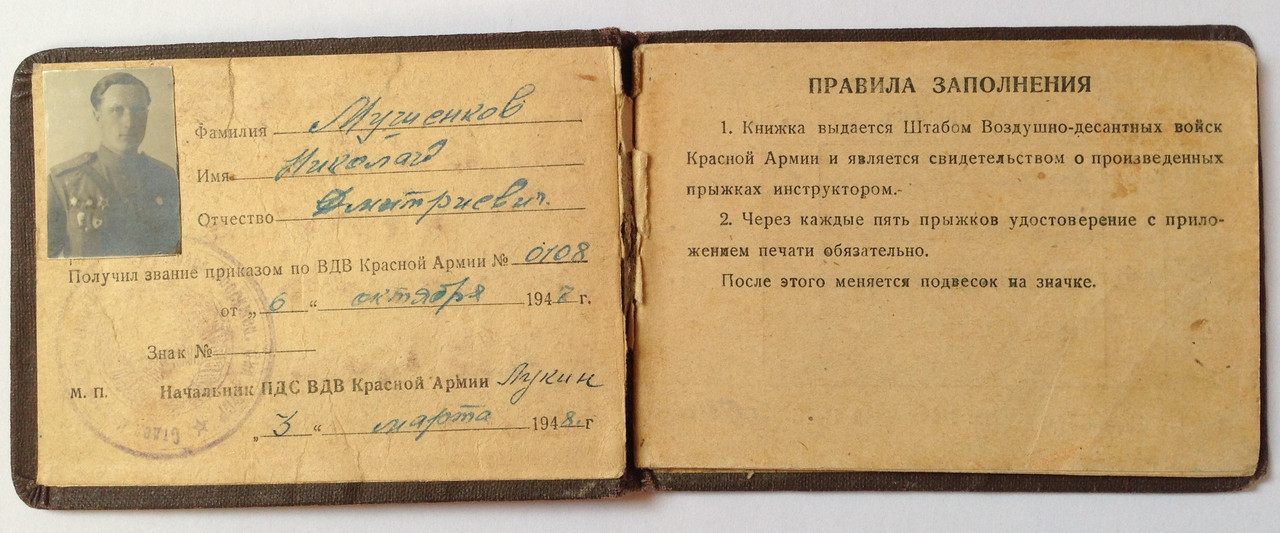 Фамилия Мушенков
Имя Николай
Отчество Дмитриевич.
Получил звание приказом по ВДВ Красной Армии № 0108
от „6“ октября 1947 г.
Знак №
М. П. Начальник ПДС ВДВ Красной Армии Лукин
„3“ марта 1948 г
ПРАВИЛА ЗАПОЛНЕНИЯ
1. Книжка выдается Штабом Воздушно-десантных войск
Красной Армии и является свидетельством о произведенных
прыжках инструктором.
2. Через каждые пять прыжков удостоверение с прило-
жением печати обязательно.
После этого меняется подвесок на значке.